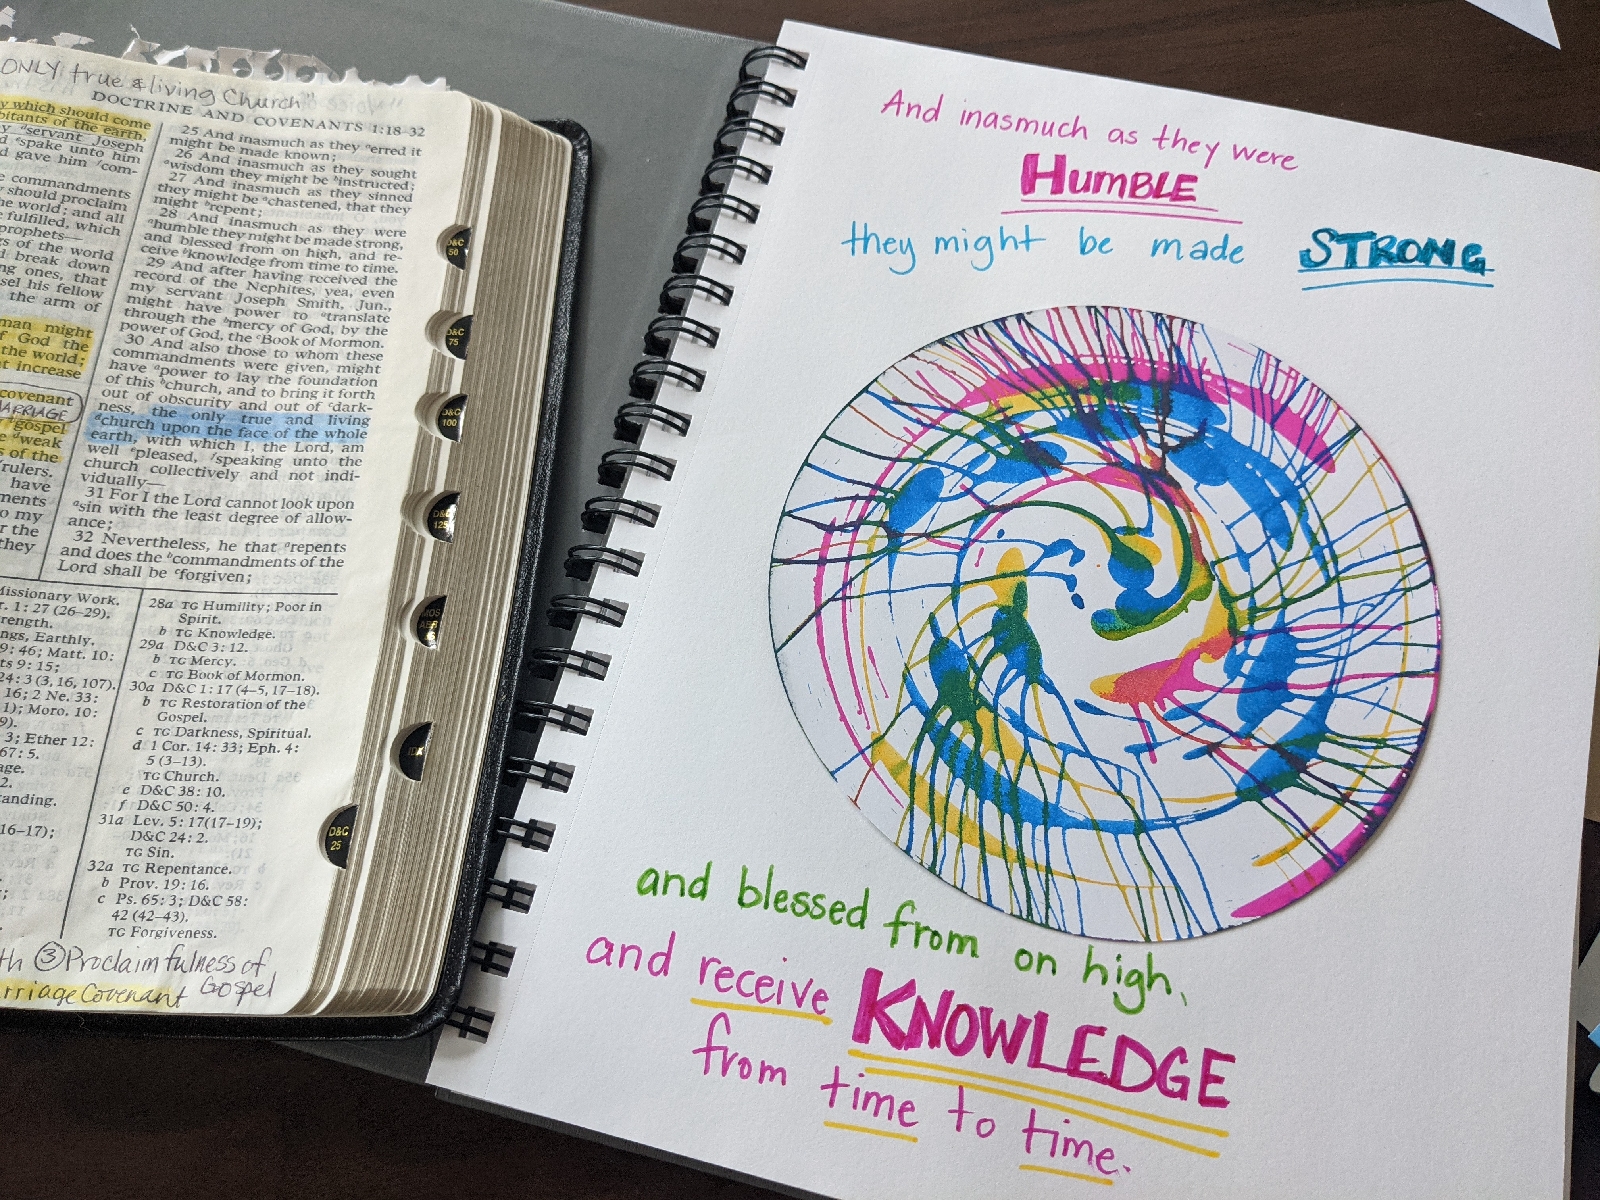 ONLY true & living Church"
DOCTRINE AND COVENANTS 1:18–32
y which should come
bitants of the earth,
servant Joseph
spake unto him
d gave him com-
commandments
should proclaim
he world; and all
fulfilled, which
prophets—
s of the world
d break down
ng ones, that
sel his fellow
the arm of
man might
f God the
the world;
t increase
covenant
MARRIAGE
gospel
weak
s of the
rulers.
have
ments
o my
r the
they
25 And inasmuch as they ᵃerred it
might be made known;
26 And inasmuch as they sought
ᵃwisdom they might be ᵇinstructed;
27 And inasmuch as they sinned
they might be ᵃchastened, that they
might ᵇrepent;
28 And inasmuch as they were
ᵃhumble they might be made strong,
and blessed from on high, and re-
ceive ᵇknowledge from time to time.
29 And after having received the
record of the Nephites, yea, even
my servant Joseph Smith, Jun.,
might have power to ᵃtranslate
through the ᵇmercy of God, by the
power of God, the ᶜBook of Mormon.
30 And also those to whom these
commandments were given, might
have ᵃpower to lay the foundation
of this ᵇchurch, and to bring it forth
out of obscurity and out of ᶜdark-
ness, the only true and living
ᵈchurch upon the face of the whole
earth, with which I, the Lord, am
well ᵉpleased, ᶠspeaking unto the
church collectively and not indi-
vidually—
31 For I the Lord cannot look upon
ᵃsin with the least degree of allow-
ance;
32 Nevertheless, he that ᵃrepents
and does the ᵇcommandments of the
Lord shall be ᶜforgiven;
Missionary Work.
r. 1: 27 (26–29).
rength.
ngs, Earthly.
9: 46; Matt. 10:
ts 9: 15;
24: 3 (3, 16, 107).
16; 2 Ne. 33:
1); Moro. 10:
9).
3; Ether 12:
67: 5.
age.
2.
tanding.
16–17);
28a TG Humility; Poor in
Spirit.
b TG Knowledge.
29a D&C 3: 12.
b TG Mercy.
c TG Book of Mormon.
30a D&C 1: 17 (4–5, 17–18).
b TG Restoration of the
Gospel.
c TG Darkness, Spiritual.
d 1 Cor. 14: 33; Eph. 4:
5 (3–13).
TG Church.
e D&C 38: 10.
f D&C 50: 4.
31a Lev. 5: 17(17–19);
D&C 24: 2.
TG Sin.
32a TG Repentance.
b Prov. 19: 16.
c Ps. 65: 3; D&C 58:
42 (42–43).
TG Forgiveness.
th ③ Proclaim fulness of
Gospel
rriage Covenant
D&C
50
D&C
75
D&C
100
D&C
125
MOS
ABR
D&C
25
And inasmuch as they were
HUMBLE
they might be made STRONG
and blessed from on high,
and receive KNOWLEDGE
from time to time.